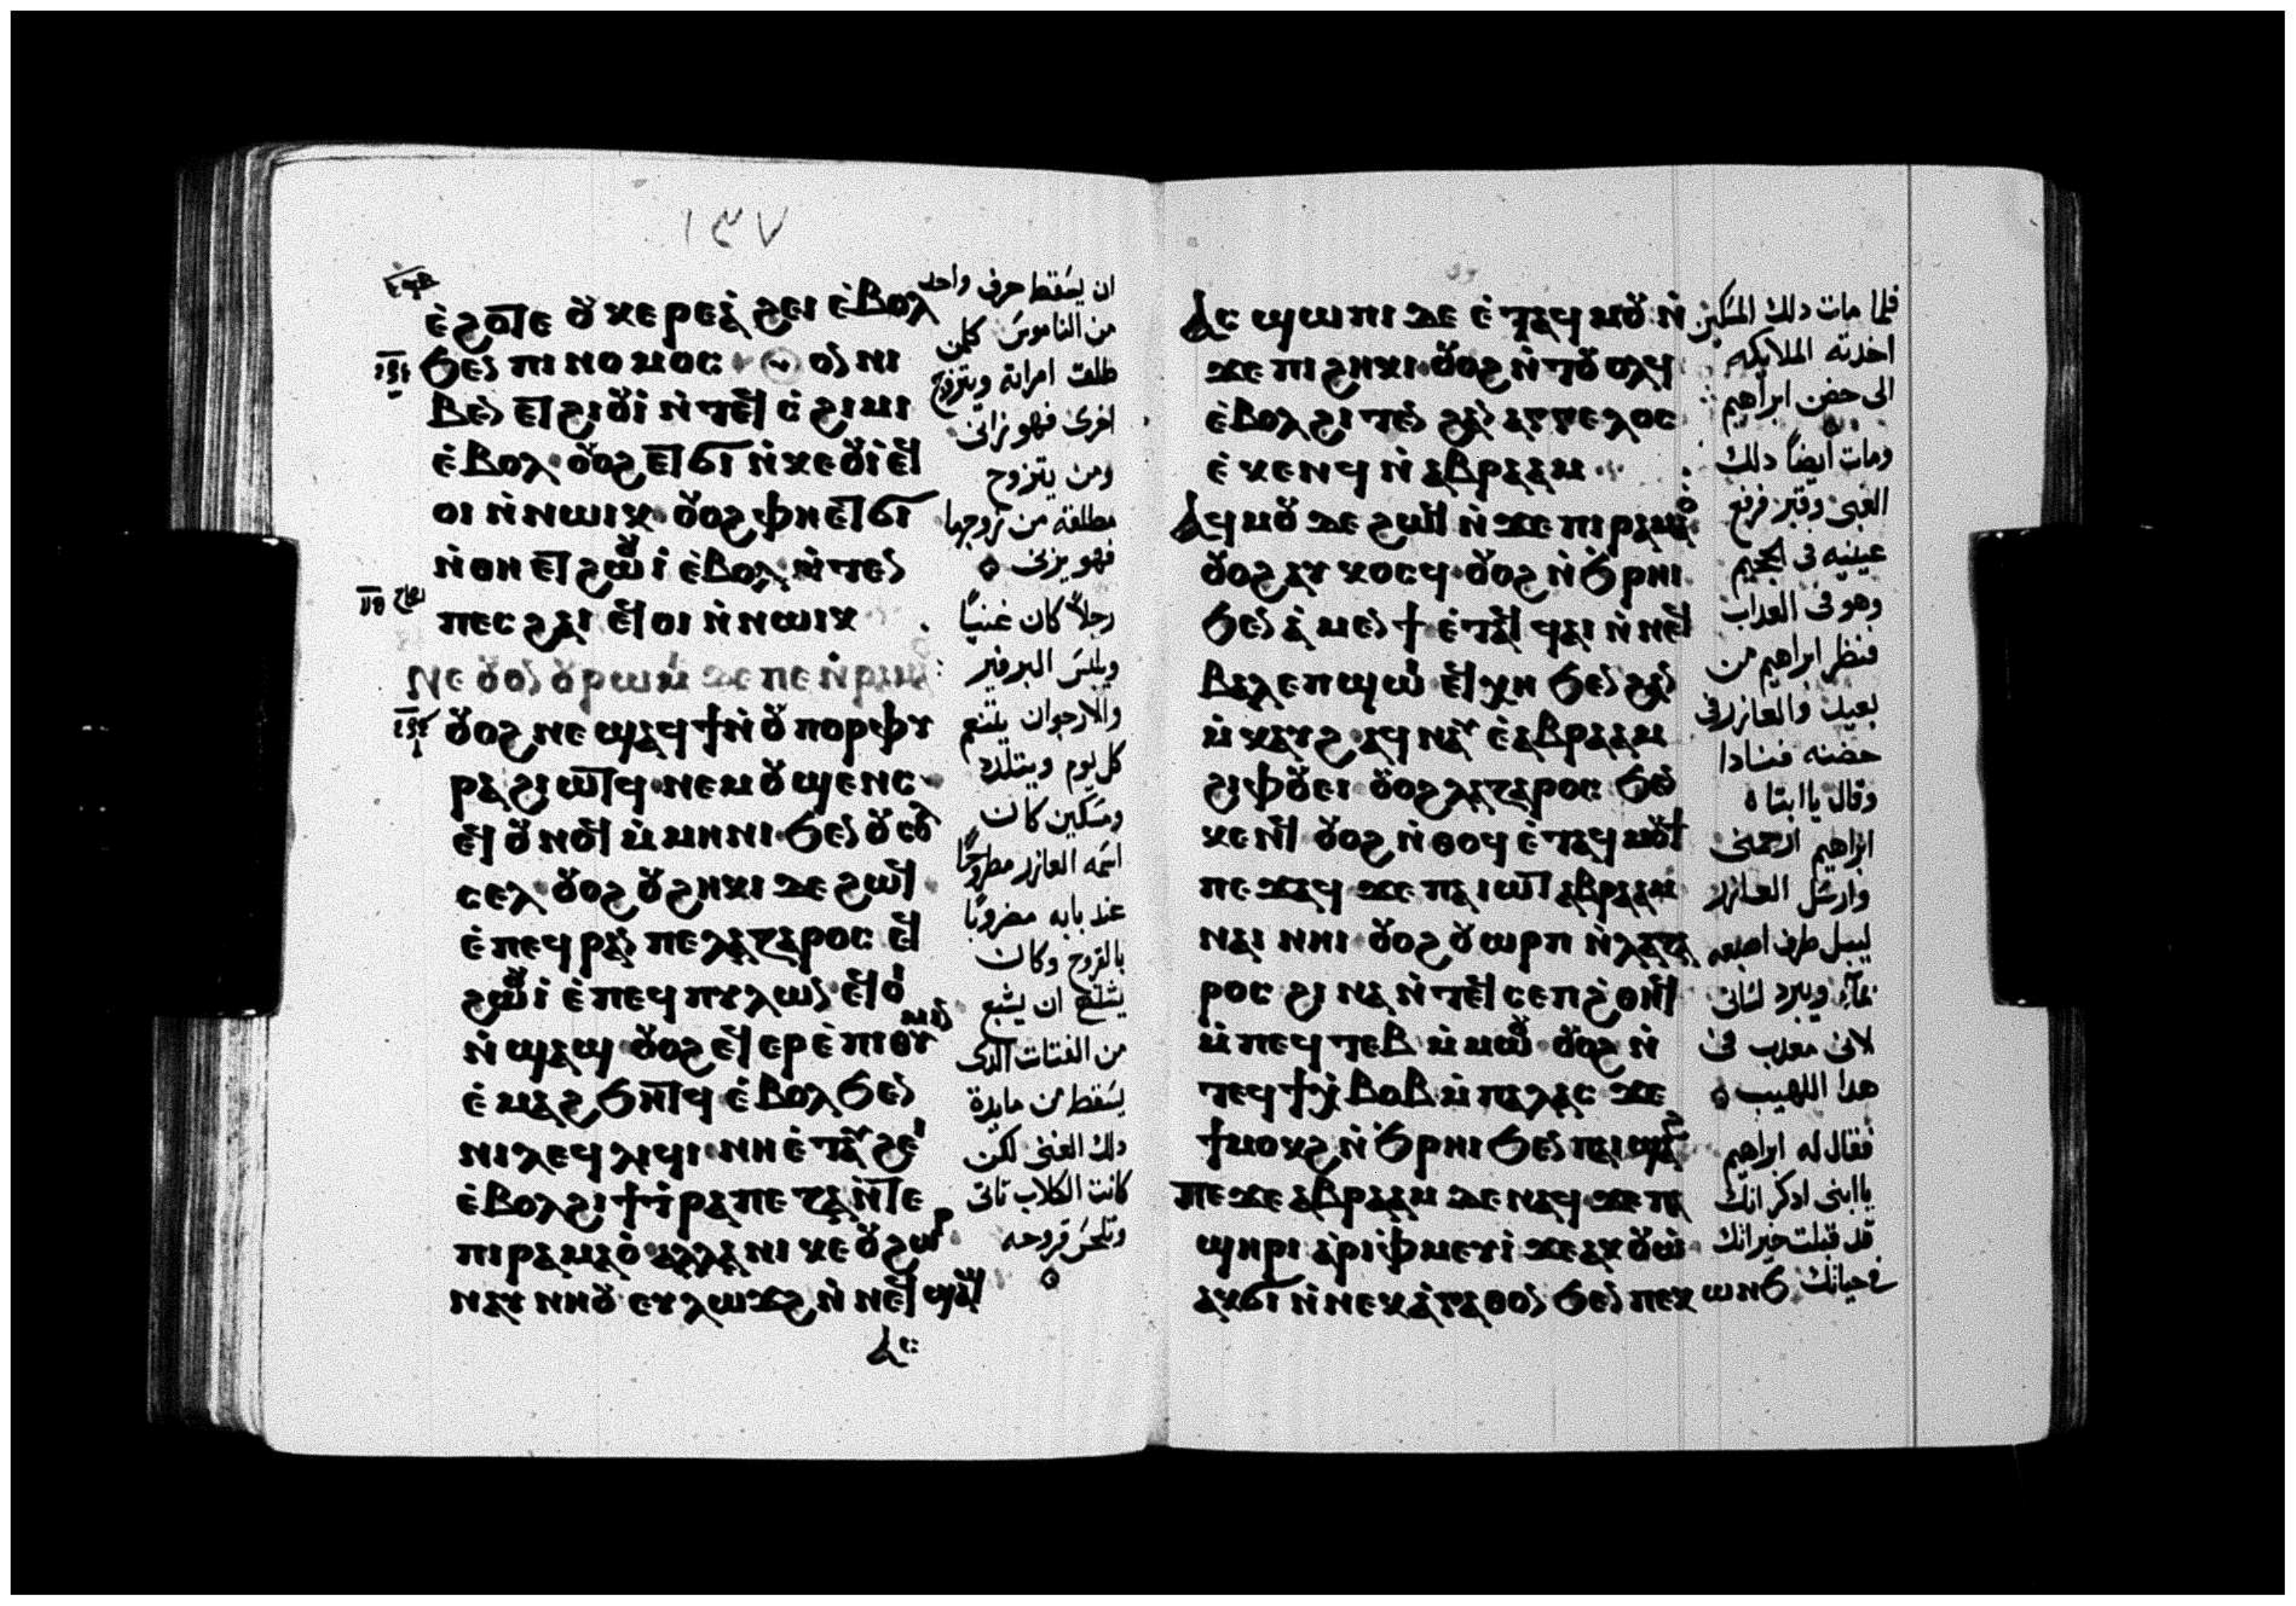 ١٣٧
ⲉ̀ϩⲟⲧⲉ ⲟⲩⲕⲉⲣⲉⲁ̀ ϩⲉⲓ ⲉ̀ⲃⲟⲗ
ϧⲉⲛ ⲡⲓⲛⲟⲙⲟⲥ · ⲟⲩⲟⲛ ⲛⲓ
ⲃⲉⲛ ⲉⲧϩⲓⲟⲩⲓ̀ ⲛ̀ⲧⲉϥⲥ̀ϩⲓⲙⲓ
ⲉ̀ⲃⲟⲗ · ⲟⲩⲟϩ ⲉⲧϭⲓ ⲛ̀ⲕⲉⲟⲩⲓ̀ ⲉϥ
ⲟⲓ ⲛ̀ⲛⲱⲓⲕ · ⲟⲩⲟϩ ⲫⲏ ⲉⲧϭⲓ
ⲛ̀ⲑⲏ ⲉⲧϩⲱⲟⲩⲓ̀ ⲉ̀ⲃⲟⲗ ⲛ̀ⲧⲉⲛ
ⲡⲉⲥϩⲁⲓ ⲉϥⲟⲓ ⲛ̀ⲛⲱⲓⲕ
ⲛⲉ ⲟⲩⲟⲛ ⲟⲩⲣⲱⲙⲓ ϫⲉ ⲡⲉ ⲛ̀ⲣⲁⲙⲁⲟ̀
ⲟⲩⲟϩ ⲛⲉ ϣⲁϥϯ ⲛ̀ⲟⲩⲡⲟⲣⲫⲩ
ⲣⲁ ϩⲓⲱⲧϥ · ⲛⲉⲙ ⲟⲩϣⲉⲛⲥ ·
ⲉϥⲟⲩⲛⲟϥ ⲙ̀ⲙⲏⲛⲓ · ϧⲉⲛ ⲟⲩⲥⲟⲗ
ⲥⲉⲗ · ⲟⲩⲟϩ ⲟⲩϩⲏⲕⲓ ϫⲉ ϩⲱϥ ·
ⲉ̀ⲡⲉϥⲣⲁⲛ ⲡⲉ ⲗⲁⲍⲁⲣⲟⲥ ⲉϥ
ϩⲱⲟⲩⲓ̀ ⲉ̀ⲡⲉϥⲡⲩⲗⲱⲛ · ⲉϥⲟⲓ
ⲛ̀ϣⲁϣ · ⲟⲩⲟϩ ⲉϥⲉⲣⲉ̀ⲡⲓⲑⲩⲙⲓⲛ
ⲉ̀ⲙⲁϩ ϧⲏⲧϥ ⲉ̀ⲃⲟⲗ ϧⲉⲛ
ⲛⲓⲗⲉϥⲗⲓϥⲓ · ⲛⲏ ⲉ̀ⲧⲁⲩϩⲉⲓ
ⲉ̀ⲃⲟⲗ ϩⲓ ϯⲧ̀ⲣⲁⲡⲉⲍⲁ ⲛ̀ⲧⲉ
ⲡⲓⲣⲁⲙⲁⲟ̀ · ⲁⲗⲗⲁ ⲛⲓⲕⲉⲟⲩϩⲱⲣ
ⲛⲁⲩⲛⲏⲟⲩ ⲉⲩⲗⲱϫϩ ⲛ̀ⲛⲉϥϣⲁϣ
ⲁⲥ
ان يسقط حرف واحد
من الناموس كلمن
طلق امراته ويتزوج
اخرى فهو زانى
ومن يتزوج
مطلقه من زوجها
فهو يزنى
رجلاً كان غنياً
ويلبس البرفير
والارجوان يتنعم
كل يوم ويتلدد
ومسكين كان
اسمه العازر مطروحًا
عند بابه مضروبًا
بالقروح وكان
يشتهى ان يشبع
من الفتات الدى
يسقط من مايدة
دلك الغنى لكن
كانت الكلاب تاتى
وتلحس قروحه
ⲁⲥϣⲱⲡⲓ ϫⲉ ⲉ̀ⲧⲁϥⲙⲟⲩ ⲛ̀
ϫⲉ ⲡⲓϩⲏⲕⲓ · ⲟⲩⲟϩ ⲛ̀ⲧⲟⲩⲟⲗϥ
ⲉ̀ⲃⲟⲗϩⲓⲧⲉⲛ ϩⲁⲛⲁⲅⲅⲉⲗⲟⲥ
ⲉ̀ⲕⲉⲛϥ ⲛ̀ⲁⲃⲣⲁⲁⲙ
ⲁϥⲙⲟⲩ ϫⲉ ϩⲱϥ ⲛ̀ϫⲉ ⲡⲓⲣⲁⲙⲁⲟ̀
ⲟⲩⲟϩ ⲁⲩⲕⲟⲥϥ · ⲟⲩⲟϩ ⲛ̀ϧⲣⲏⲓ
ϧⲉⲛ ⲁ̀ⲙⲉⲛϯ · ⲉ̀ⲧⲁϥϥⲁⲓ ⲛ̀ⲛⲉϥ
ⲃⲁⲗ ⲉⲡϣⲱⲓ ⲉϥⲭⲏ ϧⲉⲛ ϩⲁⲛ
ⲙ̀ⲕⲁⲩϩ · ⲁϥⲛⲁⲩ ⲉ̀ⲁⲃⲣⲁⲁⲙ
ϩⲓⲫⲟⲩⲉⲓ ⲟⲩⲟϩ ⲗⲁⲍⲁⲣⲟⲥ ϧⲉⲛ
ⲕⲉⲛϥ ⲟⲩⲟϩ ⲛ̀ⲑⲟϥ ⲉ̀ⲧⲁϥⲙⲟⲩϯ
ⲡⲉϫⲁϥ · ϫⲉ ⲡⲁⲓⲱⲧ ⲁⲃⲣⲁⲁⲙ
ⲛⲁⲓ ⲛⲏⲓ · ⲟⲩⲟϩ ⲟⲩⲱⲣⲡ ⲛ̀ⲗⲁⲍⲁ
ⲣⲟⲥ ϩⲓⲛⲁ ⲛ̀ⲧⲉϥⲥⲉⲡ ϩ̀ⲑⲏϥ
ⲙ̀ⲡⲉϥⲧⲉⲃ ⲙ̀ⲙⲱⲟⲩ · ⲟⲩⲟϩ ⲛ̀
ⲧⲉϥϯⲭ̀ⲃⲟⲃ ⲙ̀ⲡⲁⲗⲁⲥ ϫⲉ
ϯⲙⲟⲕϩ ⲛ̀ϧⲣⲏⲓ ϧⲉⲛ ⲡⲁⲓϣⲁϩ
ⲡⲉϫⲉ ⲁⲃⲣⲁⲁⲙ ϫⲉ ⲛⲁϥ · ϫⲉ ⲡⲁ
ϣⲏⲣⲓ ⲁ̀ⲣⲓⲫ̀ⲙⲉⲩⲓ̀ ϫⲉ ⲁⲕⲟⲩⲱ
ⲁⲕϭⲓ ⲛ̀ⲛⲉⲕⲁ̀ⲅⲁⲑⲟⲛ ϧⲉⲛ ⲡⲉⲕⲱⲛϧ
فلما مات دلك المسكين
اخدته الملايكه
الى حضن ابراهيم
ومات أيضاً دلك
الغنى وقبر فرفع
عينيه فى الجحيم
وهو فى العداب
فنظر ابراهيم من
بعيد والعازر فى
حضنه فنادا
وقال يا ابتاه
ابراهيم ارحمنى
وارسل العازر
ليبل طرف اصبعه
بمآء ويبرد لسانى
لانى معدب فى
هدا اللهيب
فقال له ابراهيم
يا ابنى ادكر انك
قد قبلت خيراتك
فى حياتك